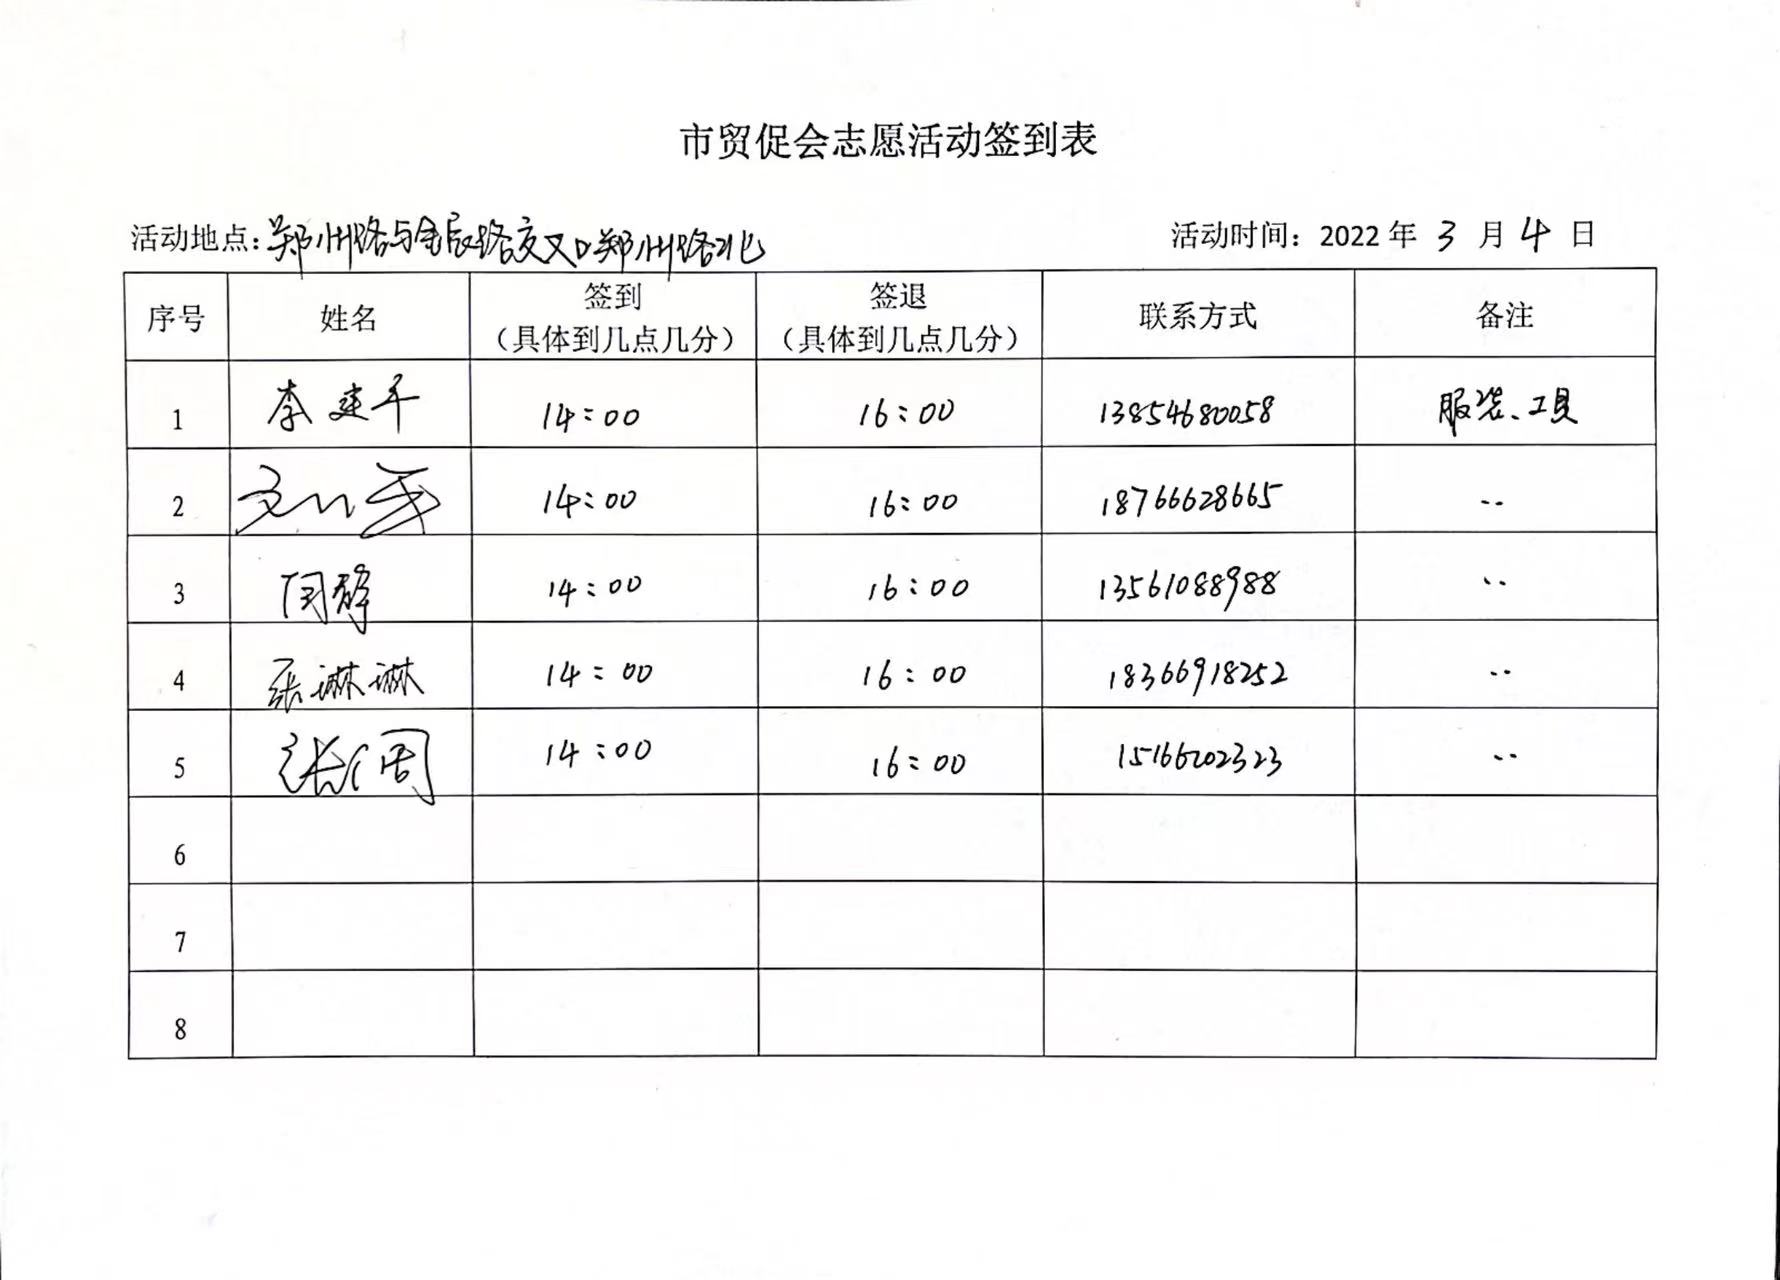 市贸促会志愿活动签到表
活动地点：郑州路与金辰路交叉口郑州路北 活动时间：2022年3月4日
序号 姓名 签到（具体到几点几分） 签退（具体到几点几分） 联系方式 备注
1 李建平 14:00 16:00 13854680058 服装、工具
2 14:00 16:00 18766628665 ··
3 闫静 14:00 16:00 13561088988 ··
4 张琳琳 14:00 16:00 18366918252 ··
5 14:00 16:00 15166202323 ··
6
7
8